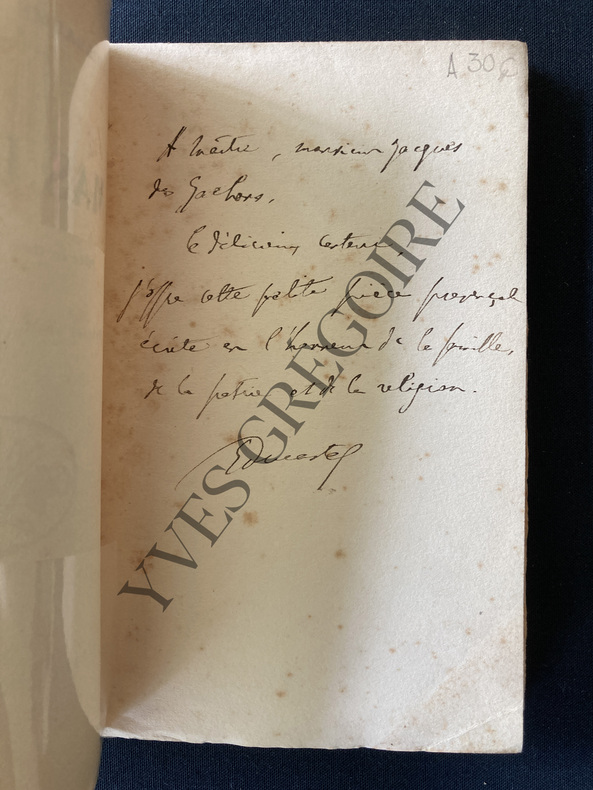 A 30€
A Maître, monsieur Jacques
des Gachons,
le délicieux conteur,
j'offre cette petite pièce provençale
écrite en l'honneur de la famille,
de la patrie et de la religion.
YVES GREGOIRE